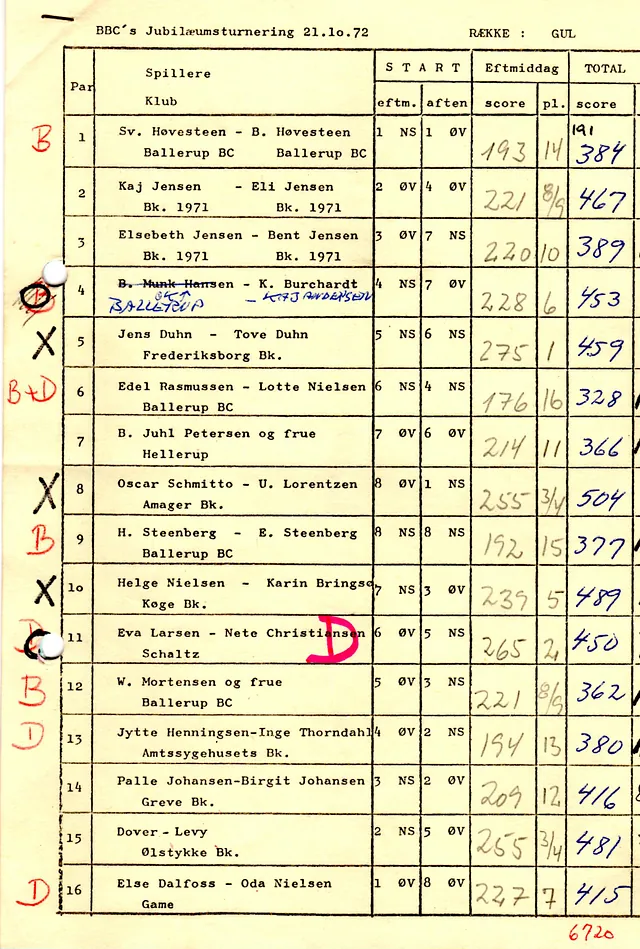 BBC's Jubilæumsturnering 21.10.72 RÆKKE : GUL
Par Spillere START Eftmiddag TOTAL
Klub eftm. aften score pl. score
B 1 Sv. Høvesteen - B. Høvesteen 1 NS 1 ØV 193 14 191 384
Ballerup BC Ballerup BC
2 Kaj Jensen - Eli Jensen 2 ØV 4 ØV 221 8/9 467
Bk. 1971 Bk. 1971
3 Elsebeth Jensen - Bent Jensen 3 ØV 7 NS 220 10 389
Bk. 1971 Bk. 1971
4 B. Munk Hansen - K. Burchardt 4 NS 7 ØV 228 6 453
BALLERUP - KAJ ANDERSEN
X 5 Jens Duhn - Tove Duhn 5 NS 6 NS 275 1 459
Frederiksborg Bk.
B+D 6 Edel Rasmussen - Lotte Nielsen 6 NS 4 NS 176 16 328
Ballerup BC
7 B. Juhl Petersen og frue 7 ØV 6 ØV 214 11 366
Hellerup
X 8 Oscar Schmitto - U. Lorentzen 8 ØV 1 NS 255 3/4 504
Amager Bk.
B 9 H. Steenberg - E. Steenberg 8 NS 8 NS 192 15 377
Ballerup BC
X 10 Helge Nielsen - Karin Bringsø 7 NS 3 ØV 239 5 489
Køge Bk.
11 Eva Larsen - Nete Christiansen D 6 ØV 5 NS 265 2 450
Schaltz
B 12 W. Mortensen og frue 5 ØV 3 NS 221 8/9 362
Ballerup BC
D 13 Jytte Henningsen-Inge Thorndahl 4 ØV 2 NS 194 13 380
Amtssygehusets Bk.
14 Palle Johansen-Birgit Johansen 3 NS 2 ØV 209 12 416
Greve Bk.
15 Dover - Levy 2 NS 5 ØV 255 3/4 481
Ølstykke Bk.
D 16 Else Dalfoss - Oda Nielsen 1 ØV 8 ØV 227 7 415
Game
6720